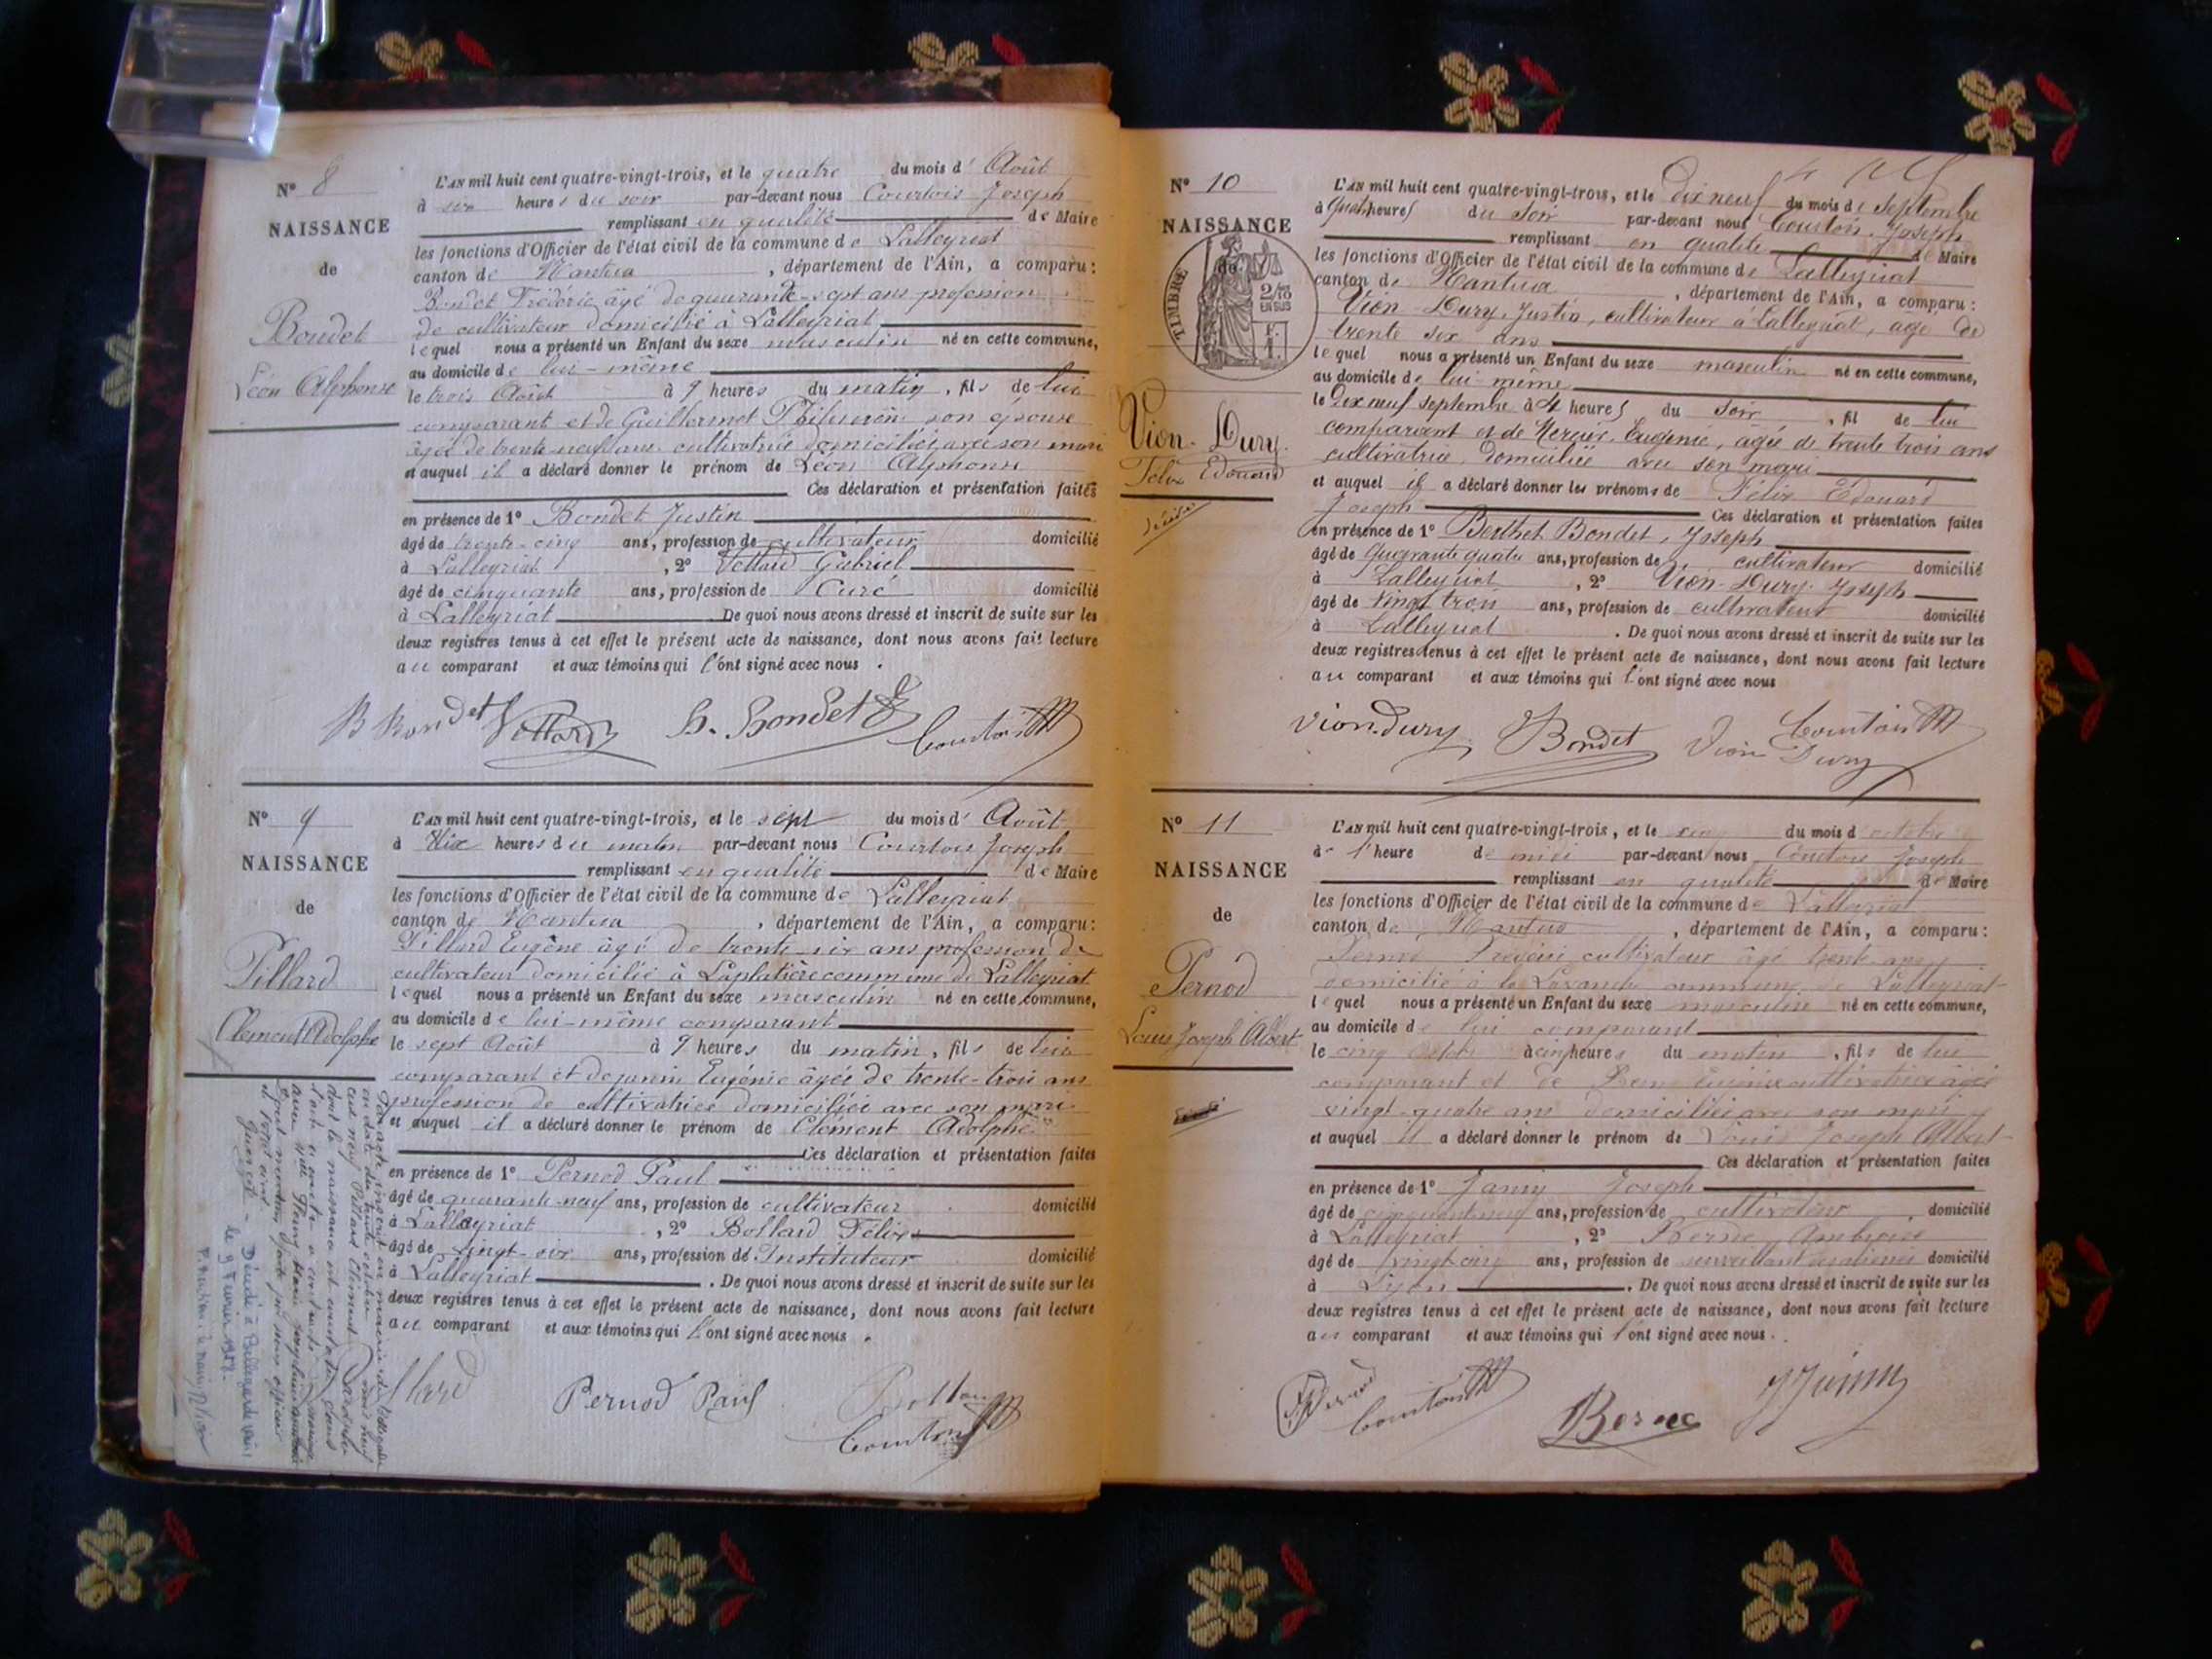 N° 8
NAISSANCE
de
Bondet
Léon Alphonse
L'AN mil huit cent quatre-vingt-trois, et le quatre du mois d' Août
à six heures du soir par-devant nous Courtois Joseph
remplissant en qualité de Maire
les fonctions d'Officier de l'état civil de la commune de Lalleyriat
canton de Nantua, département de l'Ain, a comparu:
Bondet Frédéric âgé de quarante-sept ans profession
de cultivateur domicilié à Lalleyriat
lequel nous a présenté un Enfant du sexe masculin né en cette commune,
au domicile de lui-même
le trois Août à 9 heures du matin, fils de lui
comparant et de Guillermet son épouse
âgée de trente-neuf ans cultivatrice domiciliée avec son mari
et auquel il a déclaré donner le prénom de Léon Alphonse
Ces déclaration et présentation faites
en présence de 1° Bondet Justin
âgé de trente-cinq ans, profession de cultivateur domicilié
à Lalleyriat, 2° Vottard Gabriel
âgé de cinquante ans, profession de Curé domicilié
à Lalleyriat De quoi nous avons dressé et inscrit de suite sur les
deux registres tenus à cet effet le présent acte de naissance, dont nous avons fait lecture
au comparant et aux témoins qui l'ont signé avec nous.
Bondet Courtois
N° 9
NAISSANCE
de
Pillard
Clément Adolphe
L'AN mil huit cent quatre-vingt-trois, et le sept du mois d' Août
à Dix heures du matin par-devant nous Courtois Joseph
remplissant en qualité de Maire
les fonctions d'Officier de l'état civil de la commune de Lalleyriat
canton de Nantua, département de l'Ain, a comparu:
Pillard Eugène âgé de trente-six ans profession de
cultivateur domicilié à Laplatière commune de Lalleyriat
lequel nous a présenté un Enfant du sexe masculin né en cette commune,
au domicile de lui-même comparant
le sept Août à 9 heures du matin, fils de lui
comparant et de Eugénie âgée de trente-trois ans
profession de cultivatrice domiciliée avec son mari
et auquel il a déclaré donner le prénom de Clément Adolphe
Ces déclaration et présentation faites
en présence de 1° Pernod Paul
âgé de quarante-neuf ans, profession de cultivateur domicilié
à Lalleyriat, 2° Bollard Félix
âgé de vingt-six ans, profession de Instituteur domicilié
à Lalleyriat. De quoi nous avons dressé et inscrit de suite sur les
deux registres tenus à cet effet le présent acte de naissance, dont nous avons fait lecture
au comparant et aux témoins qui l'ont signé avec nous.
Pernod Paul
Courtois
Décédé à Bellegarde
le 9 Février
N° 10
NAISSANCE
de
TIMBRE
Vion-Dury
Félix Edouard
L'AN mil huit cent quatre-vingt-trois, et le Dix neuf du mois de Septembre
à heures du soir par-devant nous Courtois Joseph
remplissant en qualité de Maire
les fonctions d'Officier de l'état civil de la commune de Lalleyriat
canton de Nantua, département de l'Ain, a comparu:
Vion-Dury Justin, cultivateur à Lalleyriat, âgé de
trente six ans
lequel nous a présenté un Enfant du sexe masculin né en cette commune,
au domicile de lui-même
le Dix neuf septembre à 4 heures du soir, fil de lui
comparant et de Mercier Eugénie, âgée de trente trois ans
cultivatrice, domiciliée avec son mari
et auquel il a déclaré donner les prénoms de Félix Edouard
Joseph Ces déclaration et présentation faites
en présence de 1° Berthet Bondet, Joseph
âgé de quarante quatre ans, profession de cultivateur domicilié
à Lalleyriat, 2° Vion-Dury Joseph
âgé de vingt trois ans, profession de cultivateur domicilié
à Lalleyriat. De quoi nous avons dressé et inscrit de suite sur les
deux registres tenus à cet effet le présent acte de naissance, dont nous avons fait lecture
au comparant et aux témoins qui l'ont signé avec nous
Vion-Dury Bondet Vion Dury Courtois
N° 11
NAISSANCE
de
Pernod
Louis Joseph Albert
L'AN mil huit cent quatre-vingt-trois, et le cinq du mois d' octobre
à 1 heure de midi par-devant nous Courtois Joseph
remplissant en qualité de Maire
les fonctions d'Officier de l'état civil de la commune de Lalleyriat
canton de Nantua, département de l'Ain, a comparu:
Pernod cultivateur âgé trente ans
domicilié à commune de Lalleyriat
lequel nous a présenté un Enfant du sexe masculin né en cette commune,
au domicile de lui comparant
le cinq octobre à cinq heures du matin, fils de lui
comparant et de cultivatrice âgée
vingt-quatre ans domiciliée avec son mari
et auquel il a déclaré donner le prénom de Louis Joseph Albert
Ces déclaration et présentation faites
en présence de 1° Joseph
âgé de ans, profession de cultivateur domicilié
à Lalleyriat, 2° Ambroise
âgé de vingt cinq ans, profession de surveillant domicilié
à Lyon. De quoi nous avons dressé et inscrit de suite sur les
deux registres tenus à cet effet le présent acte de naissance, dont nous avons fait lecture
au comparant et aux témoins qui l'ont signé avec nous.
Pernod Courtois